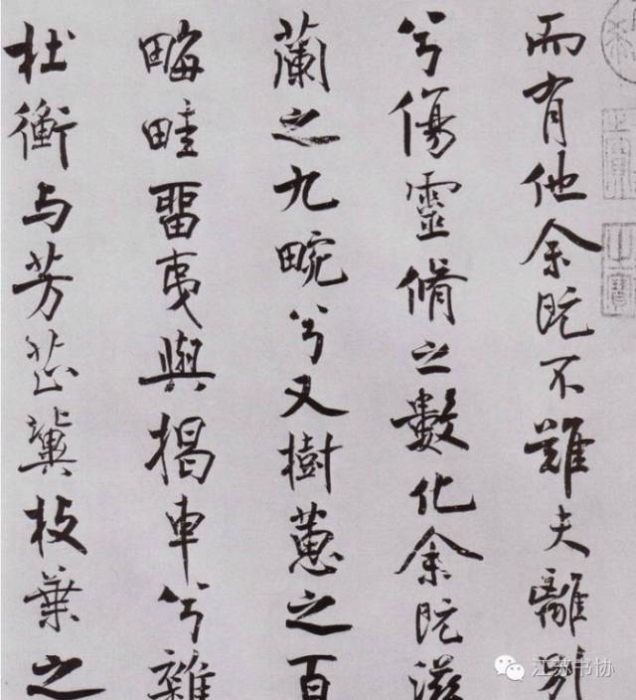 而有他余既不難夫離別
兮傷靈脩之數化余既滋
蘭之九畹兮又樹蕙之百
畮畦留夷與揭車兮雜
杜衡与芳芷冀枝葉之
江苏书协